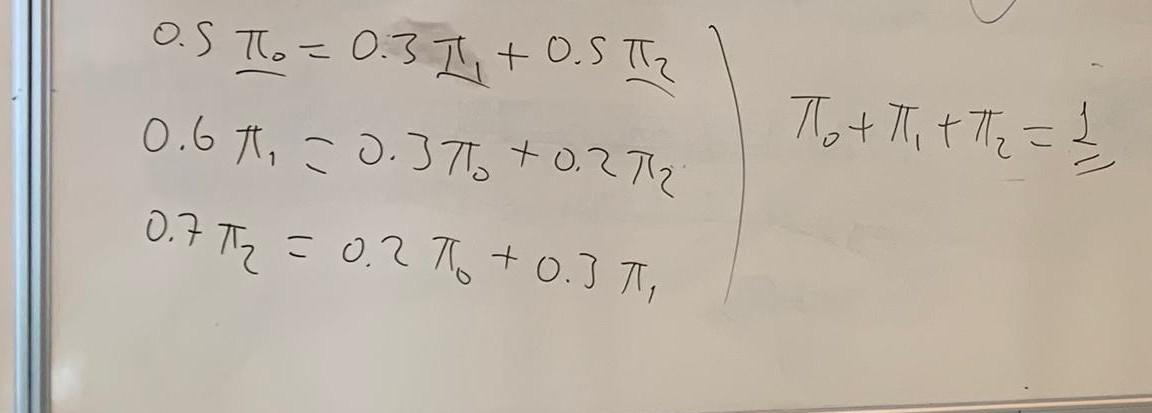 0.5 π₀ = 0.3 π₁ + 0.5 π₂
0.6 π₁ = 0.3 π₀ + 0.2 π₂
0.7 π₂ = 0.2 π₀ + 0.3 π₁
π₀ + π₁ + π₂ = 1